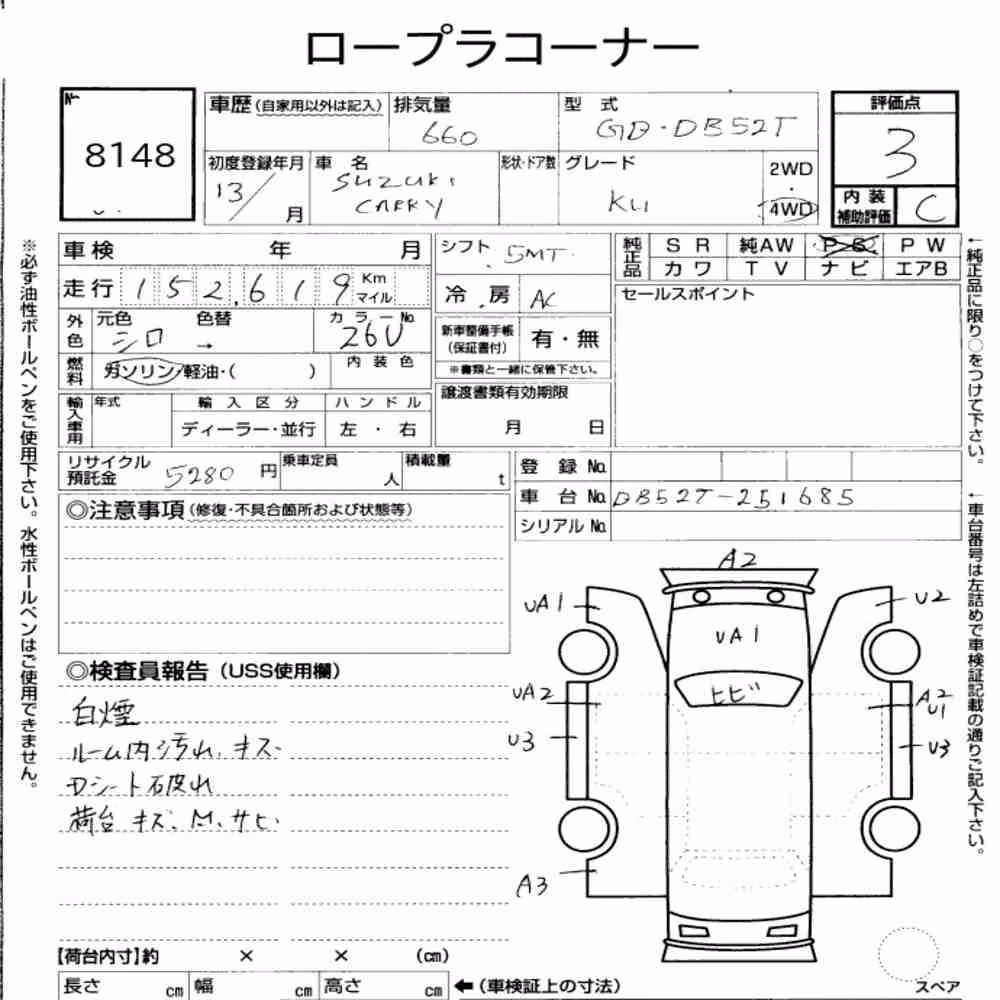 ロープラコーナー
No.
8148
車歴 (自家用以外は記入)
排気量
660
型式
GD・DB52T
評価点
3
初度登録年月
13/
月
車名
SUZUKI
CARRY
形状・ドア数
グレード
KU
2WD
・
4WD
内装
補助評価
C
車検 年 月
シフト
5MT
純正品
SR 純AW PS PW
カワ TV ナビ エアB
走行 152,619 Km マイル
冷房 AC
セールスポイント
外色
元色
シロ
色替
→
カラーNo.
26U
新車整備手帳
(保証書付)
有・無
※書類と一緒に保管下さい。
燃料
ガソリン・軽油・( )
内装色
譲渡書類有効期限
月 日
輸入車用
年式
輸入区分
ディーラー・並行
ハンドル
左・右
リサイクル
預託金
5280 円
乗車定員
人
積載量
t
登録No.
車台No. DB52T-251685
シリアルNo.
◎注意事項 (修復・不具合箇所および状態等)
◎検査員報告 (USS使用欄)
白煙
ルーム内汚れ、キズ
Dシート破れ
荷台 キズ、M、サビ
A2
UA1
U2
UA1
ヒビ
UA2
A2
U1
U3
U3
A3
【荷台内寸】約 × × (cm)
長さ cm 幅 cm 高さ cm ←(車検証上の寸法)
スペア
※必ず油性ボールペンをご使用下さい。水性ボールペンはご使用できません。
←純正品に限り○をつけて下さい。
←車台番号は左詰めで車検証記載の通りご記入下さい。